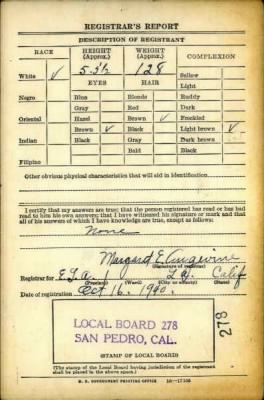 REGISTRAR'S REPORT
DESCRIPTION OF REGISTRANT
RACE HEIGHT (Approx.) WEIGHT (Approx.) COMPLEXION
White ✓ 5-3½ 128 Sallow
EYES HAIR Light
Negro Blue Blonde Ruddy
Gray Red Dark
Oriental Hazel Brown ✓ Freckled
Brown ✓ Black Light brown ✓
Indian Black Gray Dark brown
Bald Black
Filipino
Other obvious physical characteristics that will aid in identification
I certify that my answers are true; that the person registered has read or has had
read to him his own answers; that I have witnessed his signature or mark and that
all of his answers of which I have knowledge are true, except as follows:
None
Margaret E. Angevine
(Signature of registrar)
Registrar for Calif
(State)
Date of registration Oct 16, 1940.
LOCAL BOARD 278
SAN PEDRO, CAL.
278
(STAMP OF LOCAL BOARD)
(The stamp of the Local Board having jurisdiction of the registrant
shall be placed in the above space.)
U. S. GOVERNMENT PRINTING OFFICE